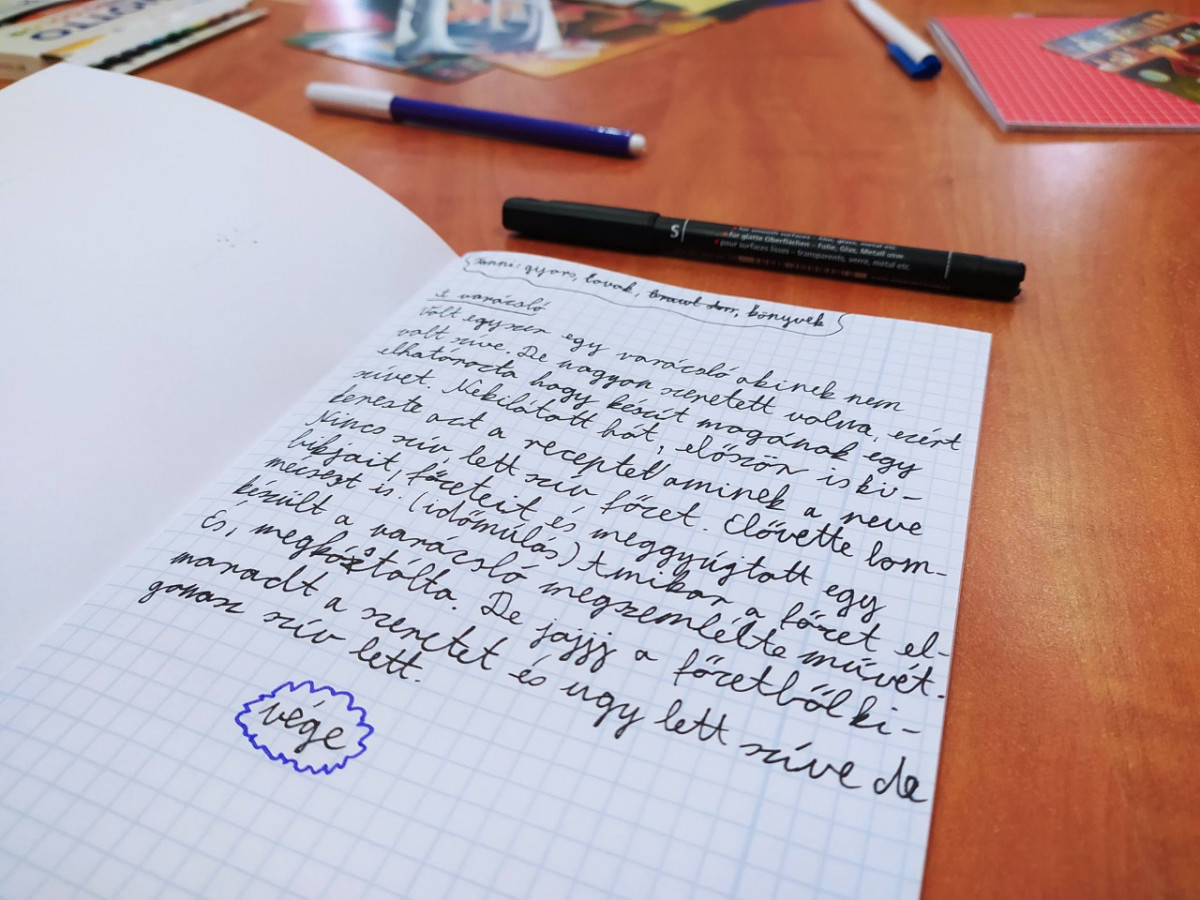 OTTO
S
for glatte Oberflächen – Folie, Glas, Metall usw.
pour surfaces lisses – transparents, verre, métal etc.
gyors, lovak, könyvek
A varácsló
Volt egyszer egy varácsló akinek nem
volt szive. De nagyon szeretett volna, ezért
elhatározta hogy készít magának egy
szívet. Nekilátott hát, először is ki-
kereste azt a receptet aminek a neve
Nincs szív lett szív főzet. Elővette lom-
bikjait, főzeteit és meggyújtott egy
mécsest is. (időmúlás) Amikor a főzet el-
készült a varácsló megszemlélte művét.
És, megkóstólta. De jajjj a főzetből ki-
maradt a szeretet és ugy lett szíve de
gonosz szív lett.
vége